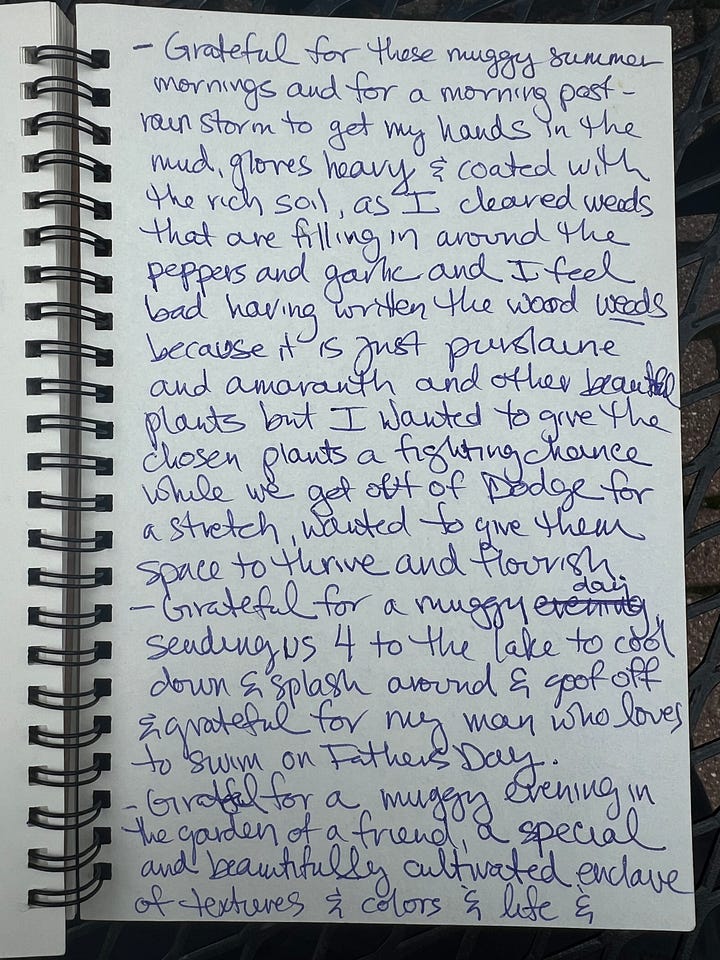 - Grateful for these muggy summer
mornings and for a morning post-
rain storm to get my hands in the
mud, gloves heavy & coated with
the rich soil, as I cleared weeds
that are filling in around the
peppers and garlic and I feel
bad having written the word weeds
because it is just purslane
and amaranth and other beautiful
plants but I wanted to give the
chosen plants a fighting chance
while we get off of Dodge for
a stretch, wanted to give them
space to thrive and flourish
- Grateful for a muggy evening day
sending us 4 to the lake to cool
down & splash around & goof off
& grateful for my man who loves
to swim on Fathers Day.
- Grateful for a muggy evening in
the garden of a friend, a special
and beautifully cultivated enclave
of textures & colors & life &